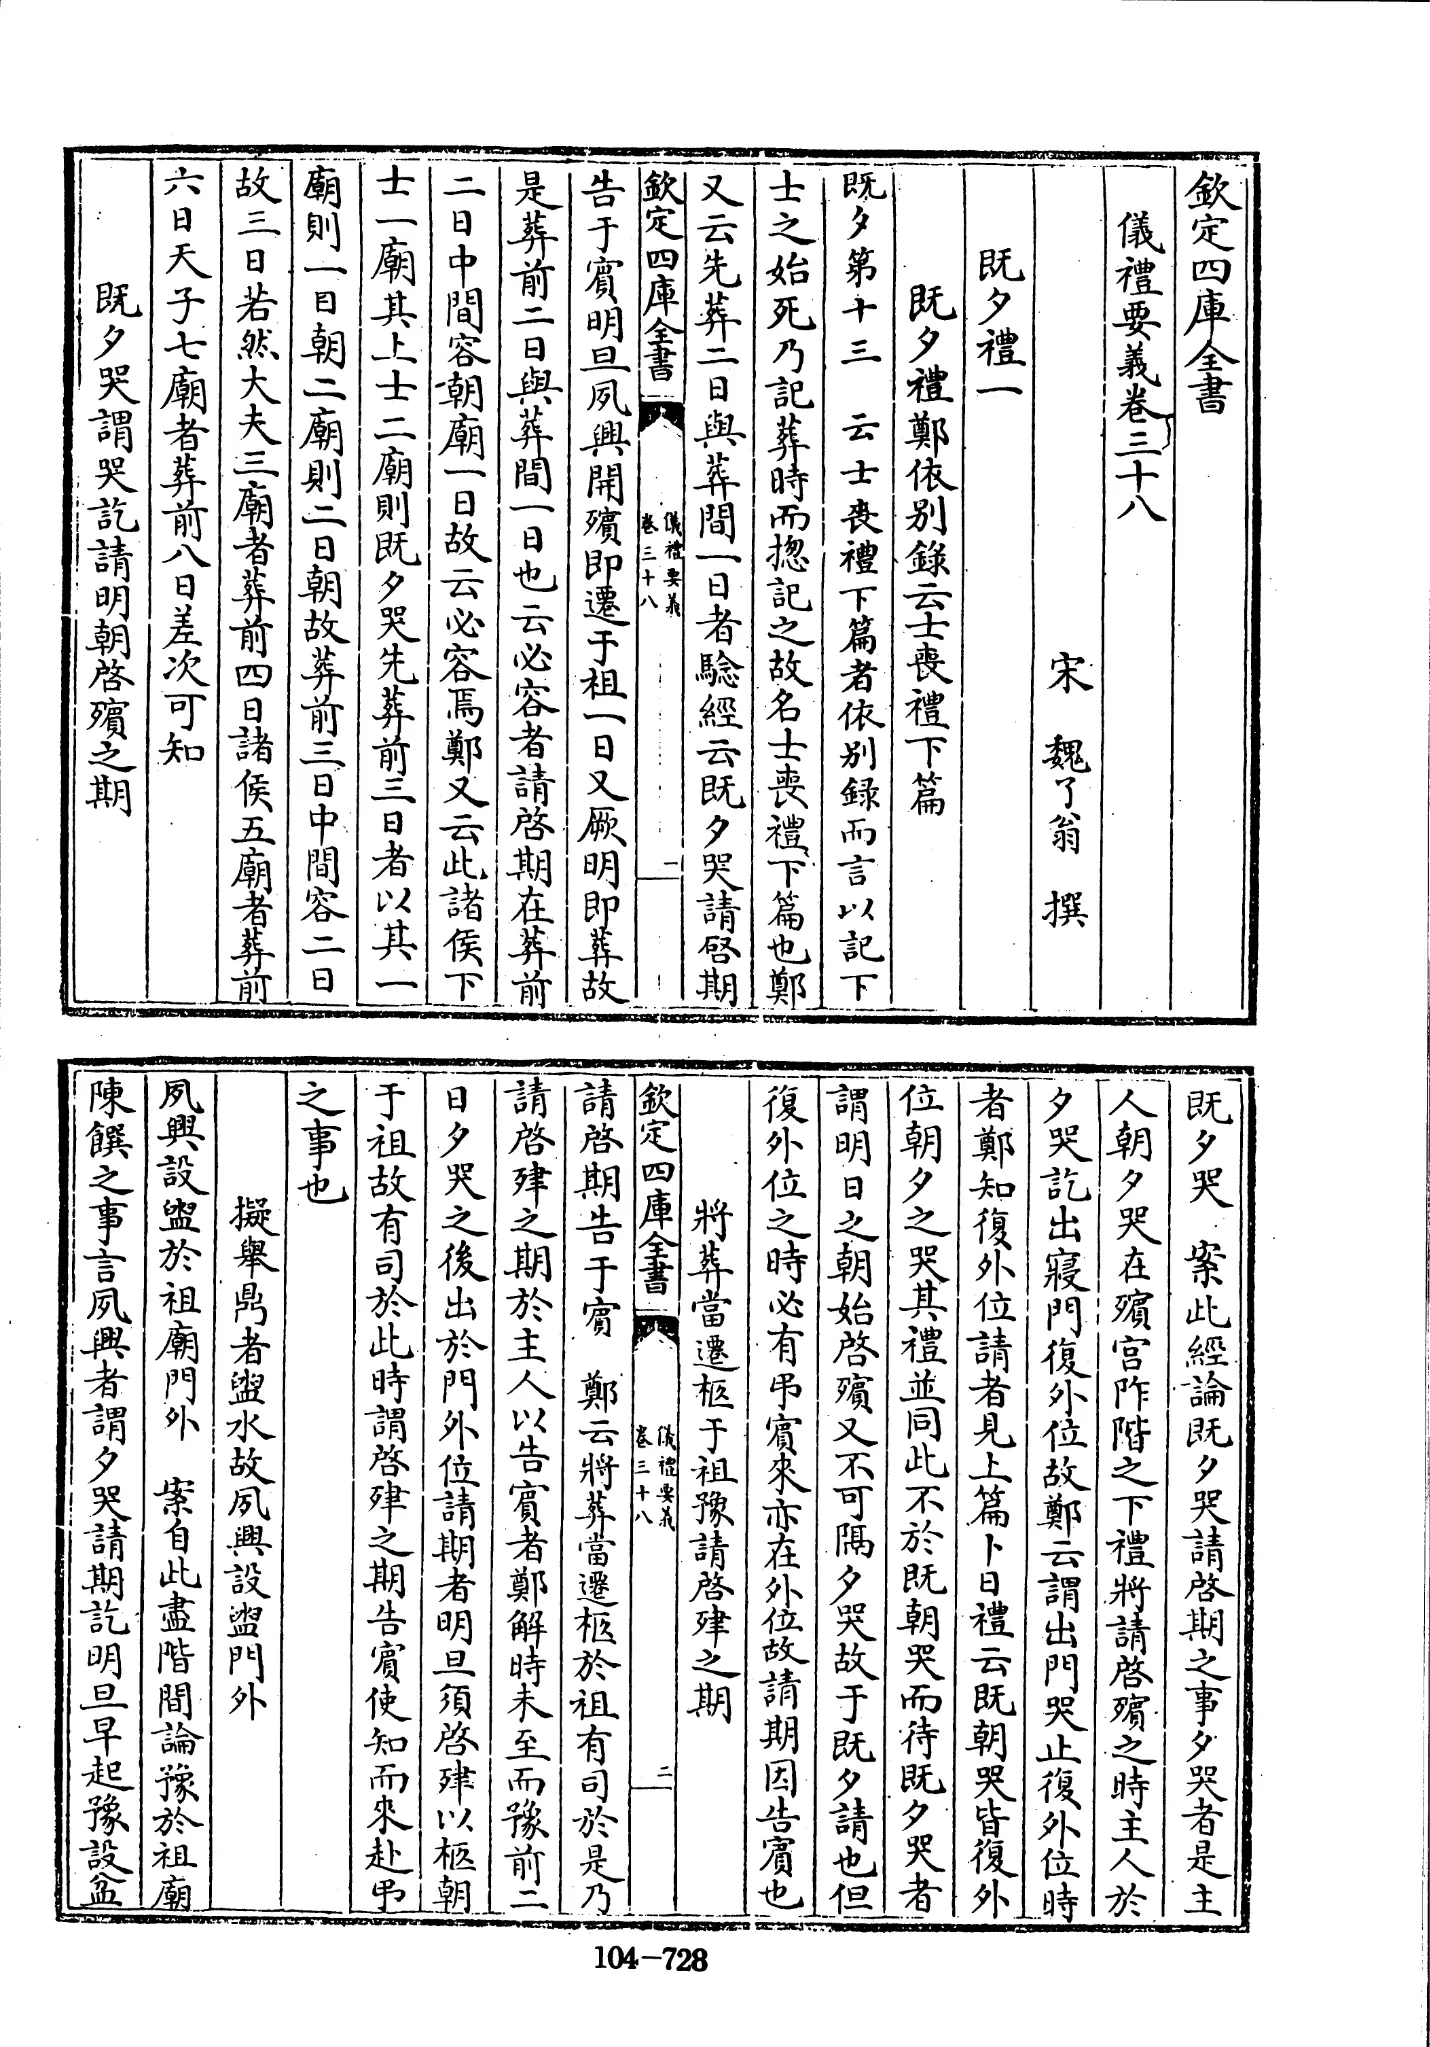 欽定四庫全書
儀禮要義卷三十八
宋 魏了翁 撰
既夕禮一
既夕禮鄭依別錄云士喪禮下篇
既夕第十三 云士喪禮下篇者依別錄而言以記下
士之始死乃記葬時而揔記之故名士喪禮下篇也鄭
又云先葬二日與葬間一日者驗經云既夕哭請啓期
欽定四庫全書
儀禮要義
卷三十八
一
告于賓明旦夙興開殯即遷于祖一日又厥明即葬故
是葬前二日與葬間一日也云必容者請啓期在葬前
二日中間容朝廟一日故云必容焉鄭又云此諸侯下
士一廟其上士二廟則既夕哭先葬前三日者以其一
廟則一日朝二廟則二日朝故葬前三日中間容二日
故三日若然大夫三廟者葬前四日諸侯五廟者葬前
六日天子七廟者葬前八日差次可知
既夕哭謂哭訖請明朝啓殯之期
既夕哭 案此經論既夕哭請啓期之事夕哭者是主
人朝夕哭在殯宮阼階之下禮將請啓殯之時主人於
夕哭訖出寢門復外位故鄭云謂出門哭止復外位時
者鄭知復外位請者見上篇卜日禮云既朝哭皆復外
位朝夕之哭其禮並同此不於既朝哭而待既夕哭者
謂明日之朝始啓殯又不可隔夕哭故于既夕請也但
復外位之時必有弔賓來亦在外位故請期因告賓也
將葬當遷柩于祖豫請啓殔之期
欽定四庫全書
儀禮要義
卷三十八
二
請啓期告于賓 鄭云將葬當遷柩於祖有司於是乃
請啓殔之期於主人以告賓者鄭解時未至而豫前二
日夕哭之後出於門外位請期者明旦須啓殔以柩朝
于祖故有司於此時謂啓殔之期告賓使知而來赴弔
之事也
擬舉鼎者盥水故夙興設盥門外
夙興設盥於祖廟門外 案自此盡階間論豫於祖廟
陳饌之事言夙興者謂夕哭請期訖明旦早起豫設盆
104-728